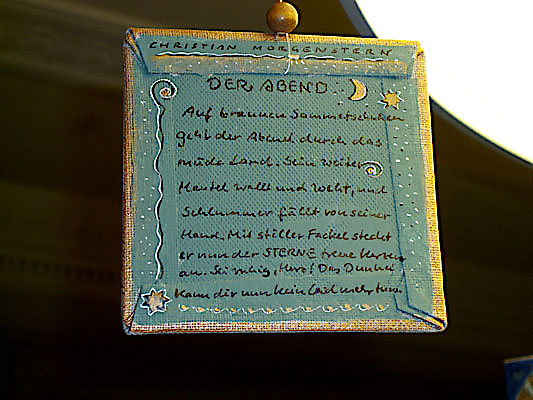 CHRISTIAN MORGENSTERN
DER ABEND
Auf braunen Sammetschuhen
geht der Abend durch das
müde Land. Sein weiter
Mantel wallt und weht, und
Schlummer fällt von seiner
Hand. Mit stiller Fackel steckt
er nun der STERNE treue Kerzen
an. Sei ruhig, Herz! Das Dunkel
kann dir nun kein Leid mehr tun.